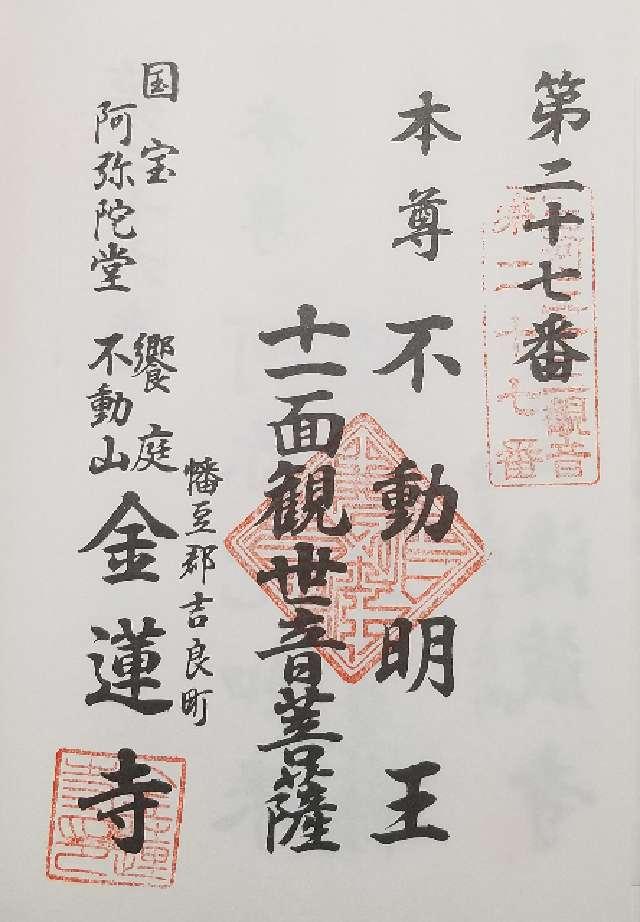 第二十七番
第二十七番
本尊 不動明王
十一面観世音菩薩
幡豆郡吉良町
国宝 饗庭
阿弥陀堂 不動山 金蓮寺